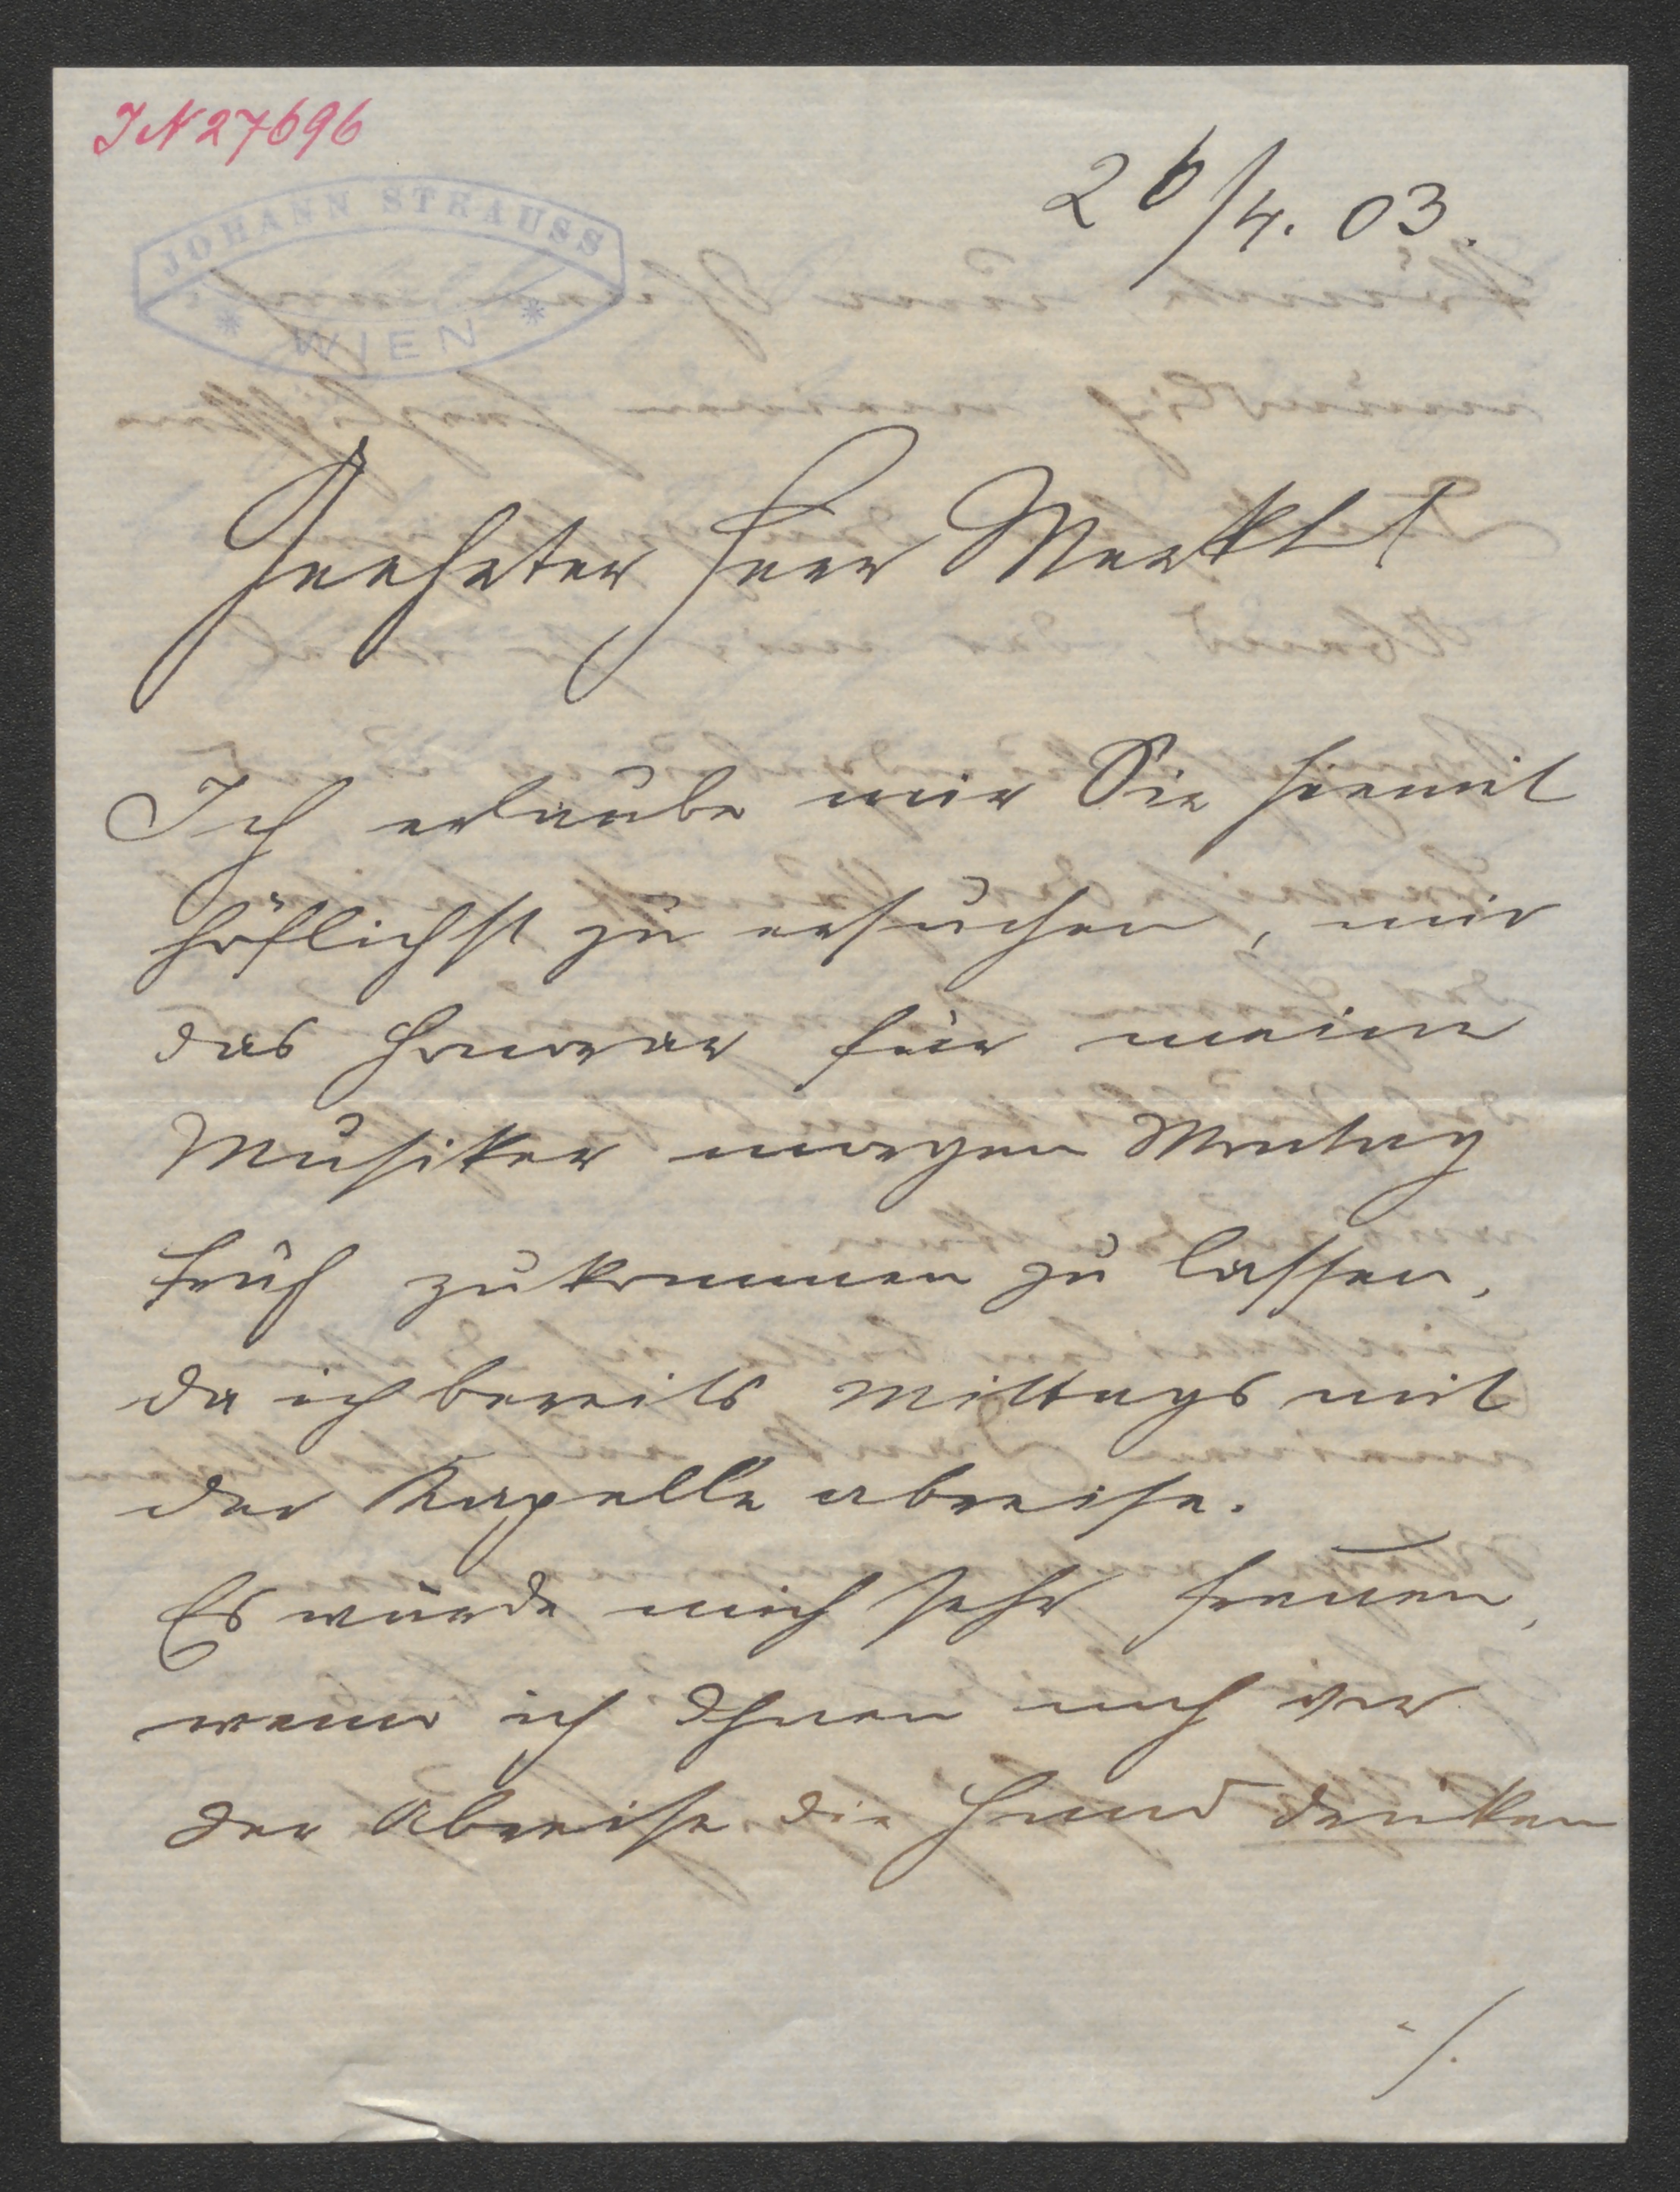 IN 27696
26/4. 03.
JOHANN STRAUSS
* WIEN *
Geehrter Herr Merkl!
Ich erlaube mir Sie hiemit
höflichst zu ersuchen, mir
das Honorar für meine
Musiker morgen Montag
früh zukommen zu lassen,
da ich bereits Mittags mit
der Kapelle abreise.
Es würde mich sehr freuen,
wenn ich Ihnen noch vor
der Abreise die Hand drücken
./.